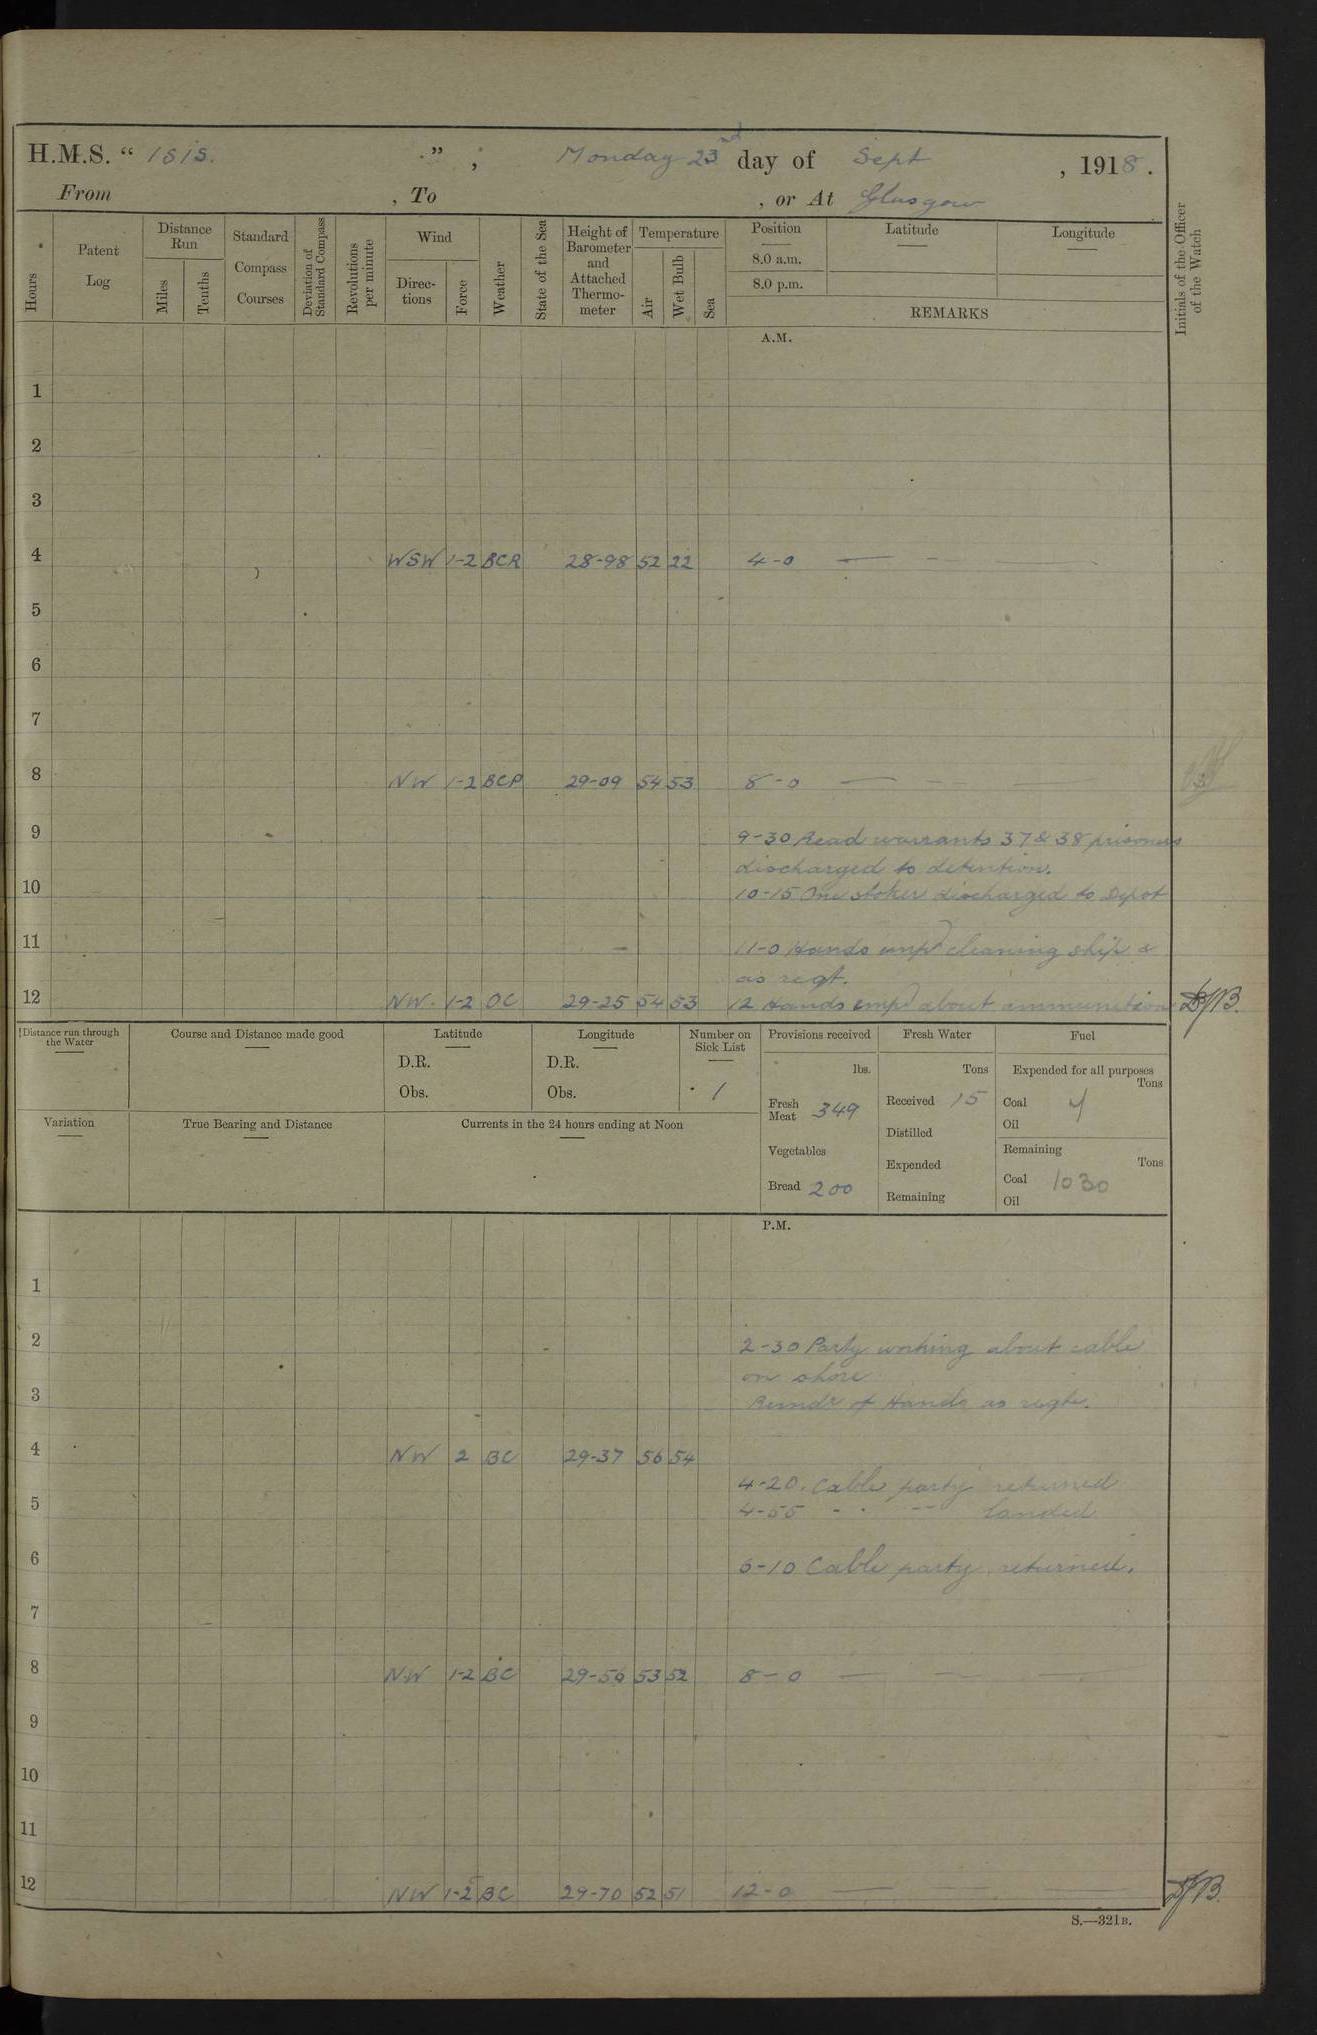 H.M.S. “ Isis. ” ; Monday 23nd day of Sept , 1918.
From , To , or At Glasgow
Hours
Patent Log
Distance Run
Miles
Tenths
Standard Compass Courses
Deviation of Standard Compass
Revolutions per minute
Wind
Directions
Force
Weather
State of the Sea
Height of Barometer and Attached Thermometer
Temperature
Air
Wet Bulb
Sea
Position
8.0 a.m.
8.0 p.m.
Latitude
Longitude
REMARKS
Initials of the Officer of the Watch
A.M.
1
2
3
4 WSW 1-2 BCR 28-98 52 22 4-0 — - —
5
6
7
8 NW 1-2 BCP 29-09 54 53 8-0 — - —
9 9-30 Read warrants 37 & 38 prisoners
discharged to detention.
10 10-15 One stoker discharged to Depot
11 11-0 Hands empd cleaning ship &
as reqt.
12 NW. 1-2 OC 29-25 54 53 12 Hands empd about ammunition
Distance run through the Water
Course and Distance made good
Latitude
D.R.
Obs.
Longitude
D.R.
Obs.
Number on Sick List
1
Provisions received
lbs.
Fresh Meat 349
Vegetables
Bread 200
Fresh Water
Tons
Received 15
Distilled
Expended
Remaining
Fuel
Expended for all purposes
Tons
Coal 4
Oil
Remaining
Tons
Coal 1030
Oil
Variation
True Bearing and Distance
Currents in the 24 hours ending at Noon
P.M.
1
2 2-30 Party working about cable
on shore
3 Remdr of Hands as reqte.
4 NW 2 BC 29-37 56 54
4-20. Cable party returned
5 4-55 - · -- landed
6 6-10 Cable party returned.
7
8 NW 1-2 BC 29-56 53 52 8-0 — — —
9
10
11
12 NW 1-2 BC 29-70 52 51 12-0 — — —
S.—321B.